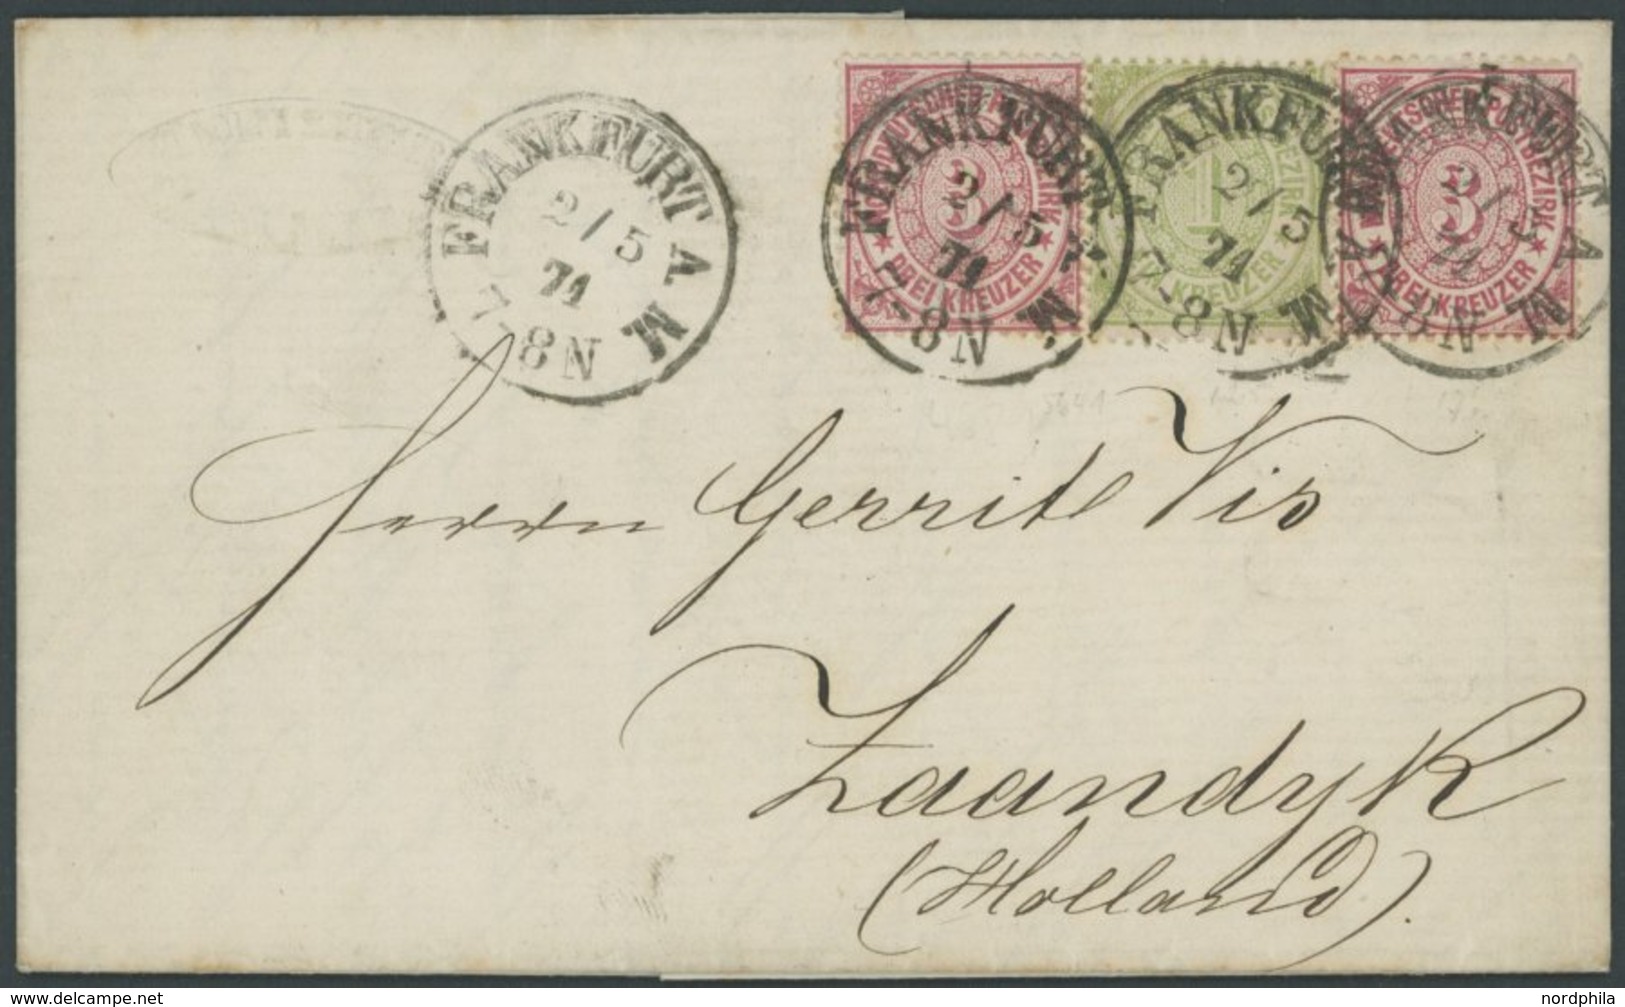 FRANKFURT A M.
2/5
71
7-8N
NORDDEUTSCHER POSTBEZIRK
3
DREI KREUZER
FRANKFURT A. M.
2/5
71
7-8N
1
KREUZER
FRANKFURT A M.
2/5
71
7-8N
NORDDEUTSCHER POSTBEZIRK
3
DREI KREUZER
FRANKFURT A M.
2/5
71
8N
Herrn Gerrit Vis
Zaandyk
(Holland).
www.delcampe.net
nordphila